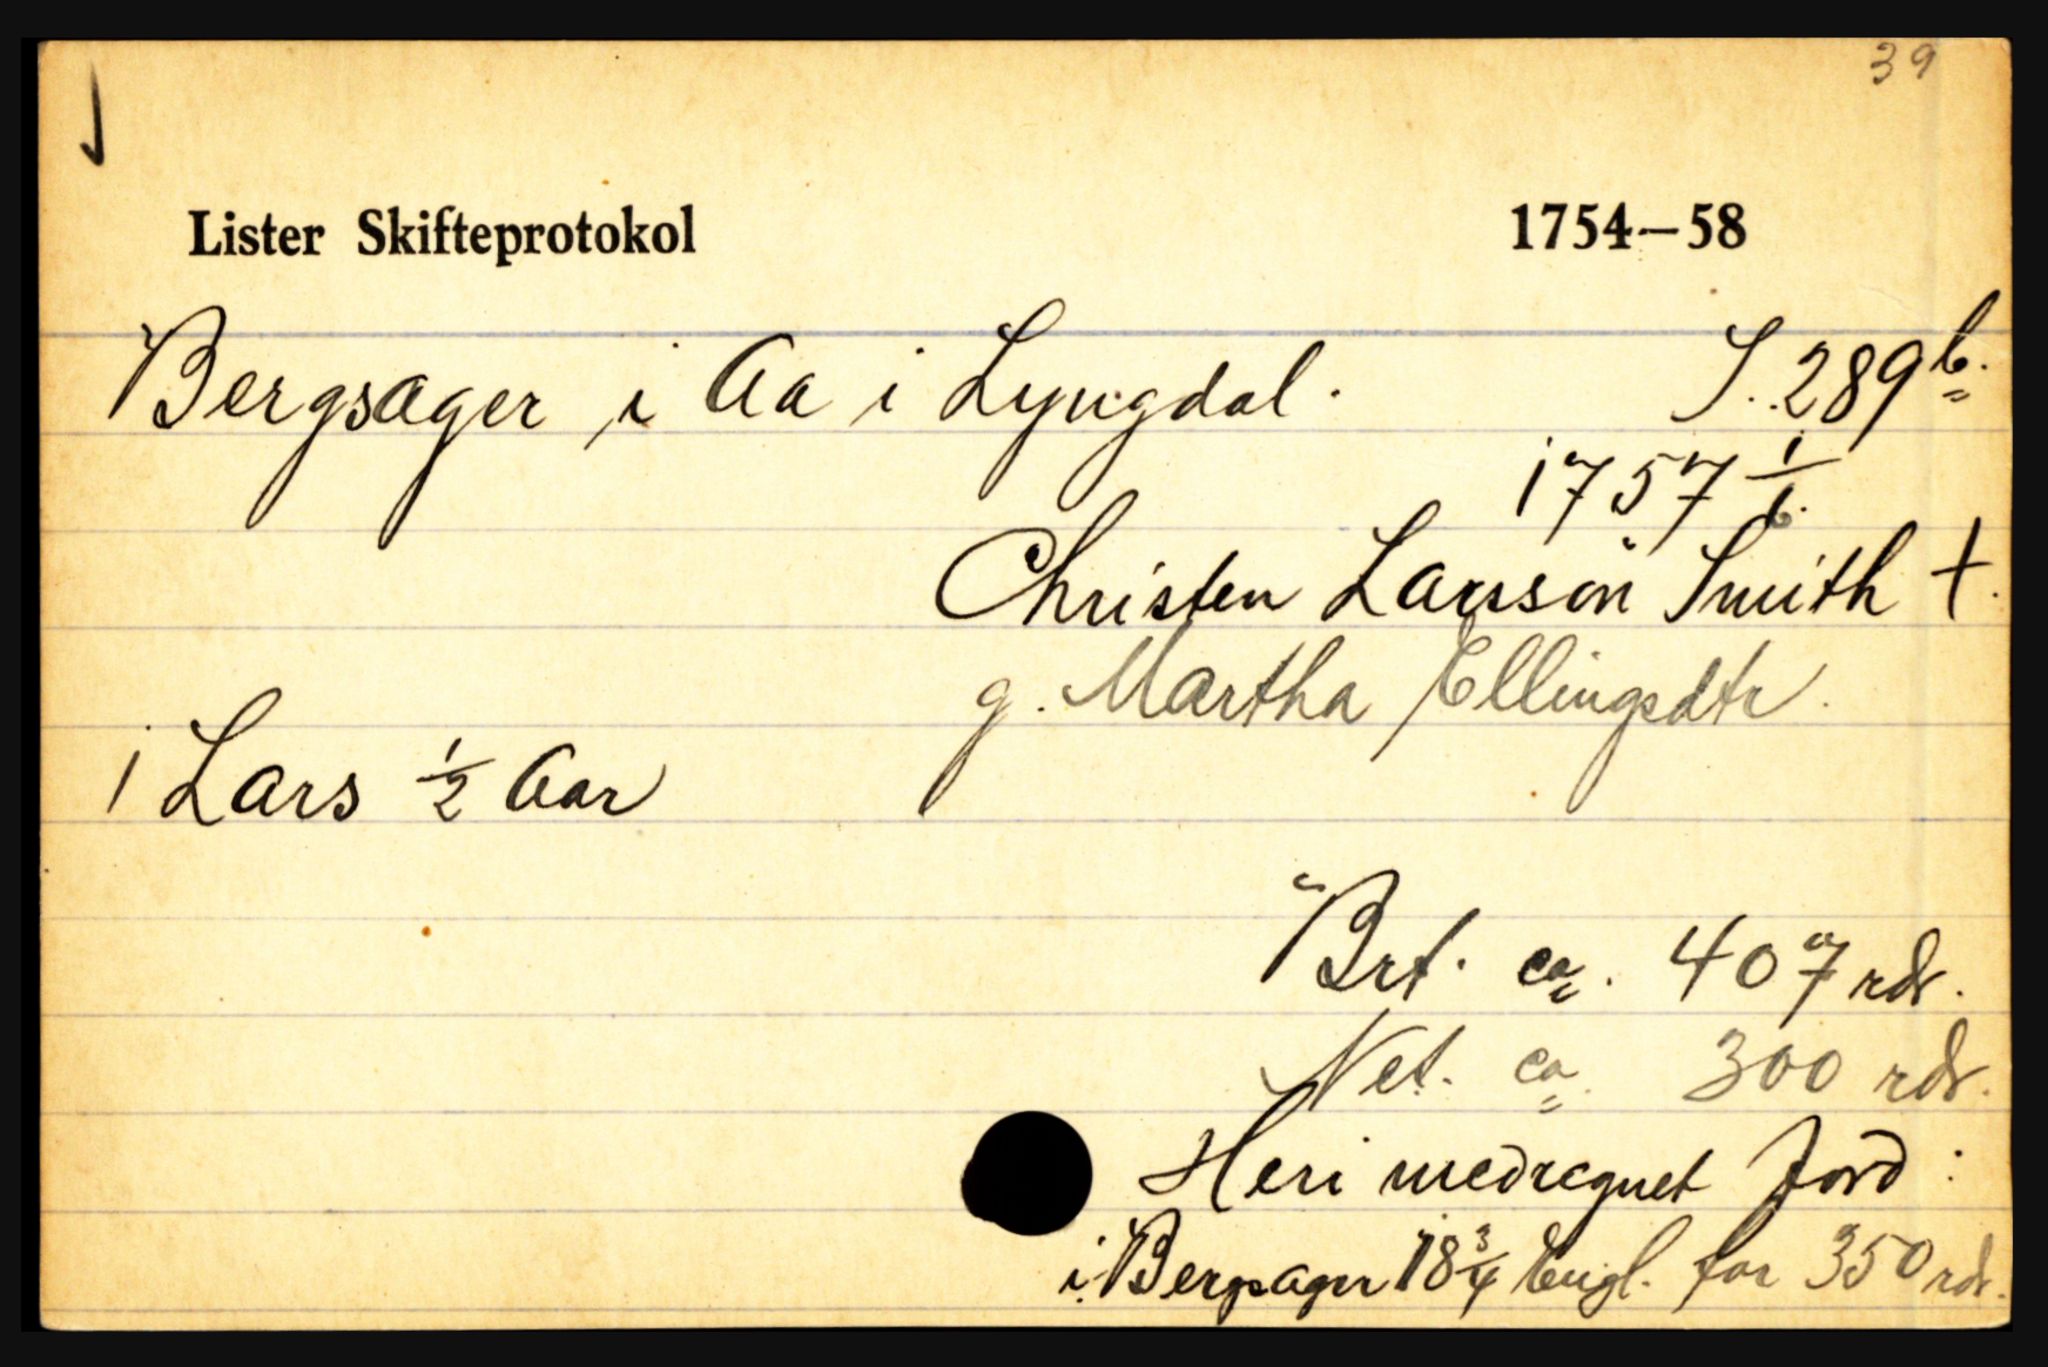 39
Lister Skifteprotokol 1754—58
Bergsager i Aa i Lyngdal. S. 289 b.
1757 1/6.
Christen Larsson Smith †.
g. Martha Ellingsdtr.
1 Lars 1/2 Aar
Brt. ca. 407 rdr.
Net. ca. 300 rdr.
Heri medregnet Jord:
i Bergsager 18 3/4 Engl. for 350 rdr.